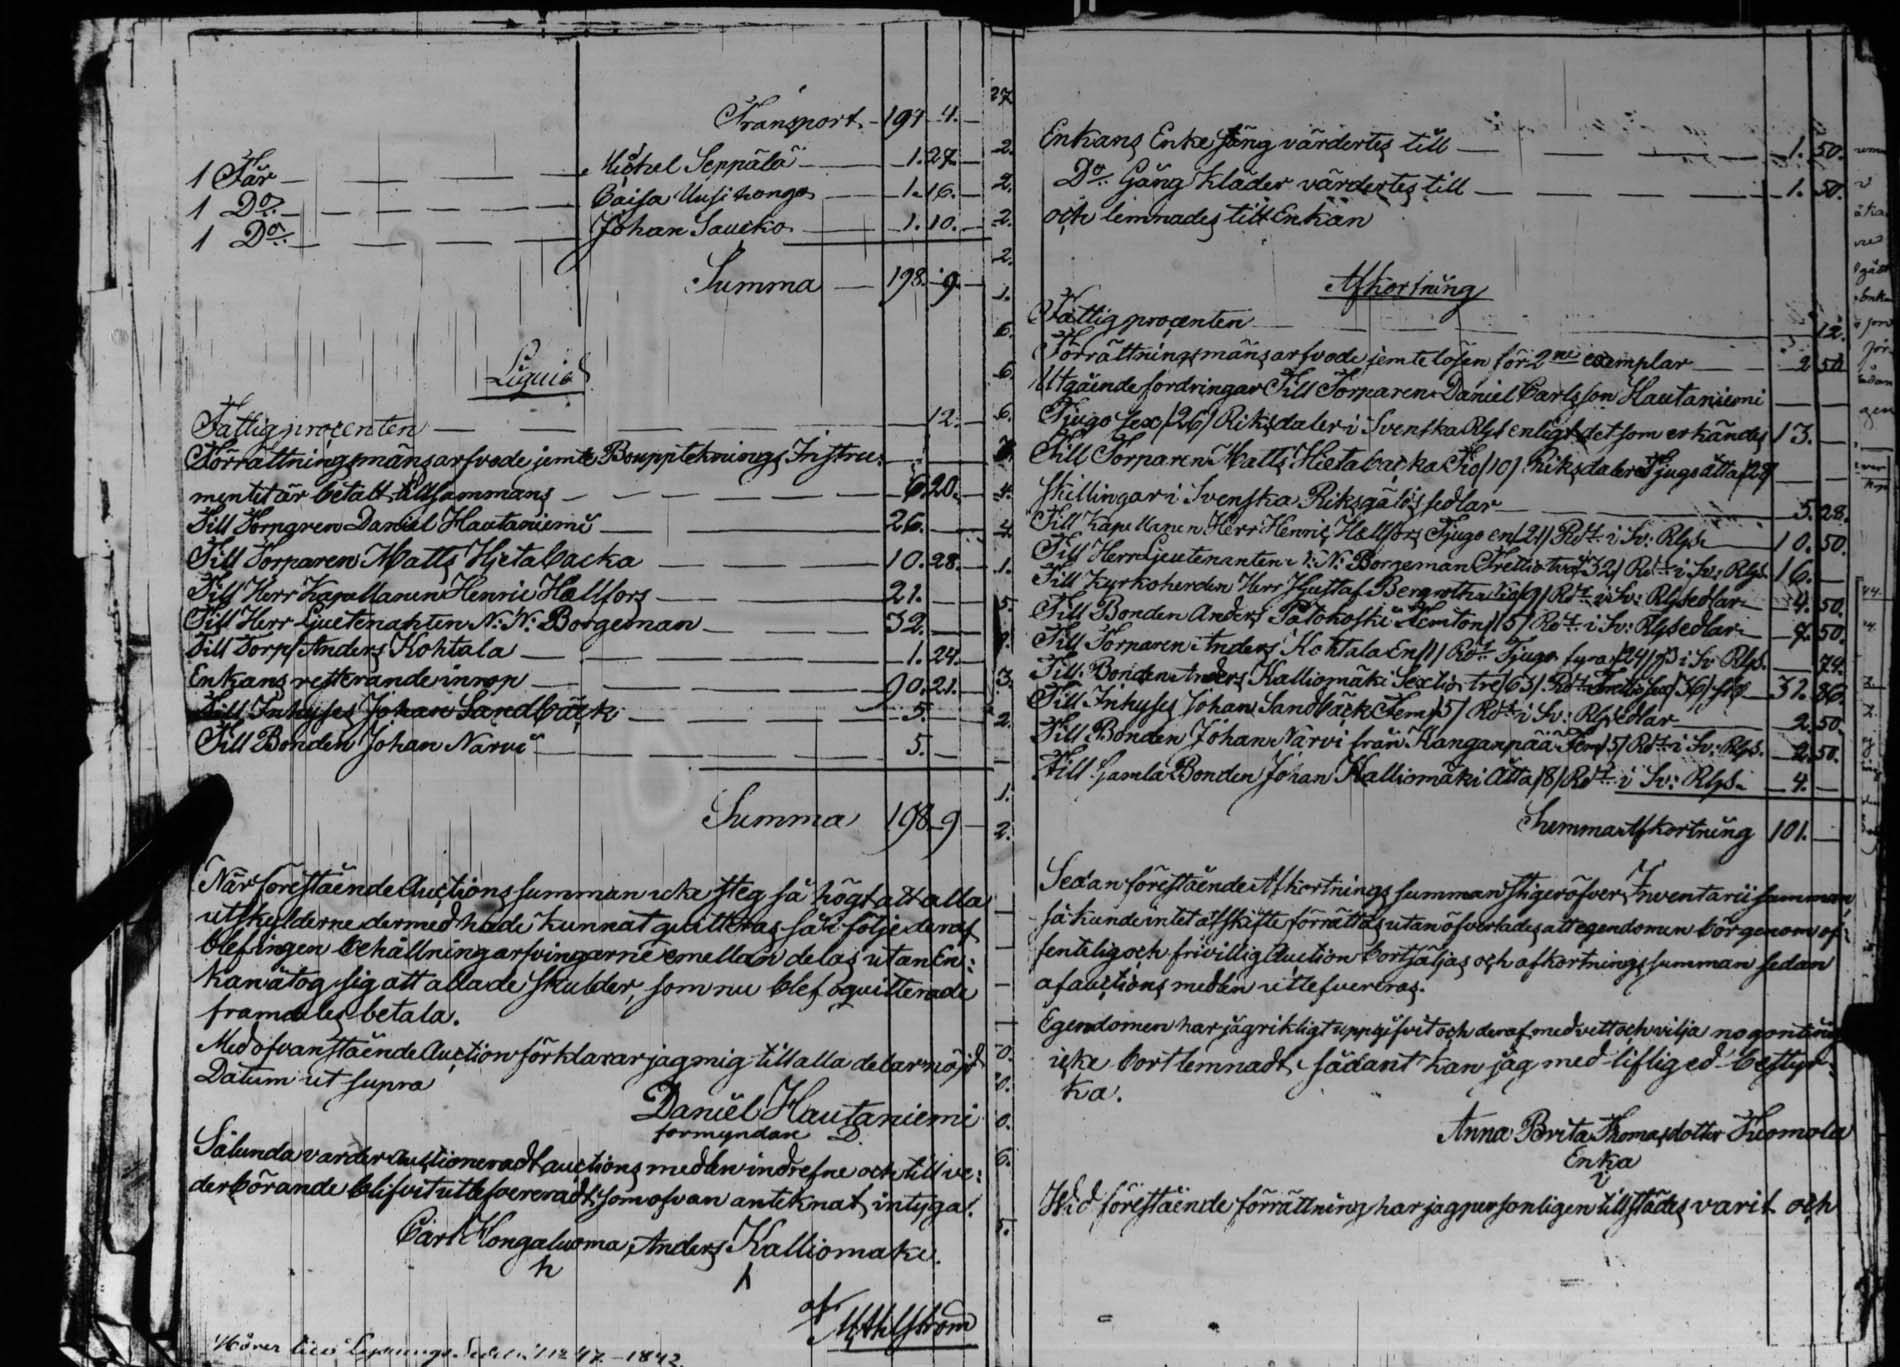 Transport. 197. 4.
1 Får Michel Seppälä 1. 27.
1 Do. Caisa Uusihonga 1. 16.
1 Do. Johan Saucko 1. 10.
Summa 198. 9.
Liquid
Fattig procenten 12.
Förrättningsmäns arfvode jemte Bouppteknings Instru-
mentet är betalt tillsammans 6 20.
Till Torparen Daniel Hautaniemi 26.
Till Torparen Matts Hietabacka 10. 28.
Till Herr Kapellanen Henric Hællfors 21.
Till Herr Lieutenanten N: N: Borgeman 32.
Till Torp. Anders Kohtala 1. 24.
Enkans resterande inrop 90. 21.
Till Inhyses Johan Sandbäck 5.
Till Bonden Johan Narvi 5.
Summa 198 9
När förestående Auctions summan icke steg så högt att alla
utskylderne dermed hade kunnat quitteras, så i följe deraf
blef ingen behållning arfvingarne emellan delas utan En:
kan åtog sig att alla de skulder, som nu blef oquitterade
framdeles betala.
Med ofvanstående Auction förklarar jag mig till alla delar nöjd
Datum ut supra
Daniel Hautaniemi
formyndare
Sålunda vara auctioneradt, auctions medlen indrefne och till ve:
derbörande blifvit utlefvereradt, som ofvan anteknat, intyga.
Carl Kongaluoma, Anders Kalliomäki.
af
M Ahlström
1847 - 1842.
Enkans Enke säng värdertes till 1. 50.
Do. Gång kläder värdertes till 1. 50.
och lemnades till Enkan
Afkortning
Fattig procenten 12.
Förrättningsmäns arfvode jemte lösen för 2ne exemplar 2 50
Utgående fordringar Till Torparen Daniel Carlsson Hautaniemi
Tjugo sex /26/ Riksdaler i Svenska Rgs enligt det som erkändes 13.
Till Torparen Matts Hietabacka Tio /10/ Riksdaler Tjugo åtta /28/
skillingar i Svenska Riksgälds sedlar 5. 28.
Till Kapellanen Herr Henric Hællfors Tjugo en /21/ Rdr i Sv: Rgs. 10. 50.
Till Herr Lieutenanten N: N: Borgeman Trettio två /32/ Rdr i Sv: Rgs. 16.
Till Kyrkoherden Herr Gustaf Bergrotha Nio /9/ Rdr i Sv: Rgsedlar 4. 50.
Till Bonden Anders Patokoski Femton /15/ Rdr i Sv: Rgsedlar 7. 50.
Till Torparen Anders Kohtala En /1/ Rdr Tjugo fyra /24/ i Sv: Rgs. 74.
Till Bonden Anders Kalliomäki Sextio tre /63/ Rdr Trettio sex /36/ 31. 86.
Till Inhyses Johan Sandbäck Fem /5/ Rdr i Sv: Rgsedlar 2. 50.
Till Bonden Johan Narvi från Kanganpää Fem /5/ Rdr i Sv: Rgs. 2. 50.
Till Gamla Bonden Johan Kalliomäki Åtta /8/ Rdr i Sv: Rgs. 4.
Summa Afkortning 101.
Sedan förestående Afkortnings summan stiger öfver Inventarii summan,
så kunde intet arfskifte förrättas utan öfverlades att egendomen bör genom of:
fentelig och frivillig Auction bortsäljas och afkortnings summan sedan
af auctions medlen utlefvereras.
Egendomen har jag riktigt uppgifvit och deraf med vett och vilja nogonting
icke bortlemnadt, sådant kan jag med liflig ed bestyr:
ka.
Anna Brita Thomasdotter Kuomola
Enka
Wid förestående förrättning har jag personligen tillstädes varit och